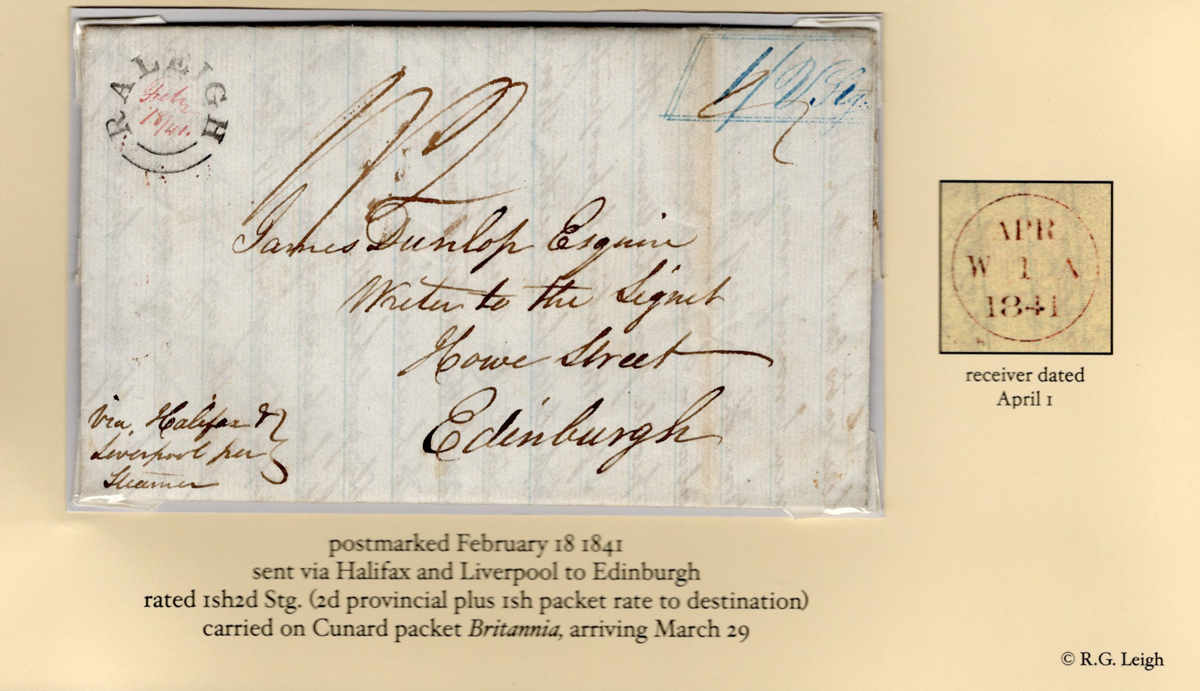 RALEIGH
Feby
18/41.
1/2
1/2 Stg.
James Dunlop Esquire
Writer to the Signet
Howe Street
Edinburgh
via, Halifax &
Liverpool per
Steamer
APR
W 1 A
1841
receiver dated
April 1
postmarked February 18 1841
sent via Halifax and Liverpool to Edinburgh
rated 1sh2d Stg. (2d provincial plus 1sh packet rate to destination)
carried on Cunard packet Britannia, arriving March 29
© R.G. Leigh